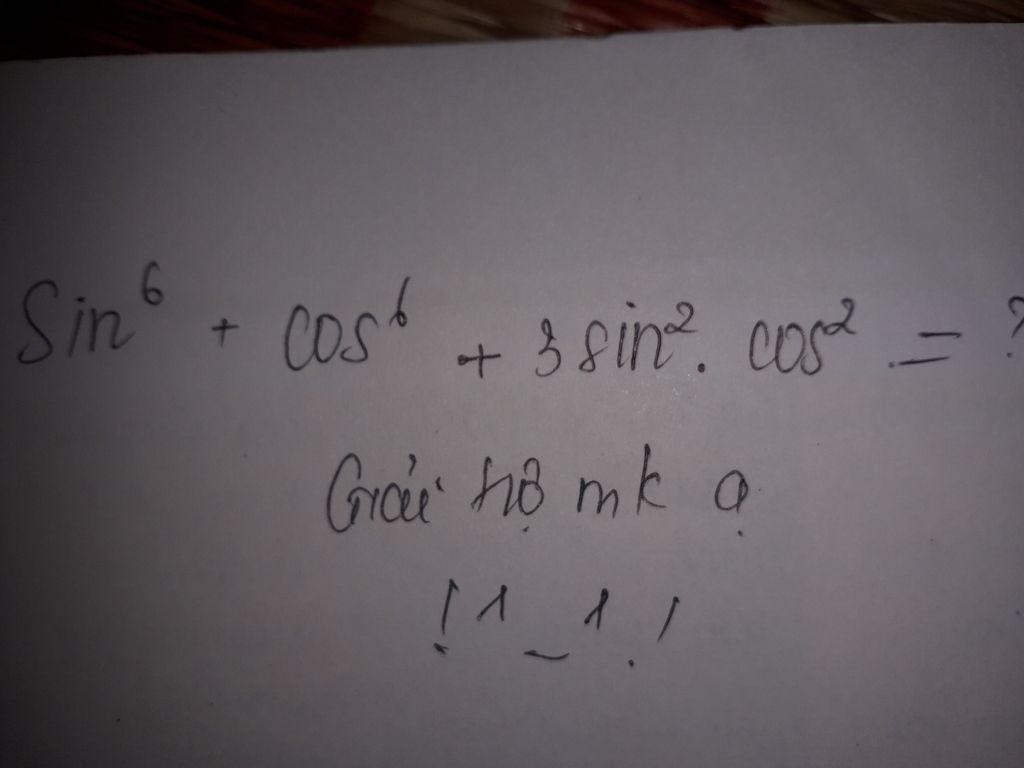 Sin⁶ + cos⁶ + 3 sin². cos² = ?
Giải hộ mk ạ
!^_^!